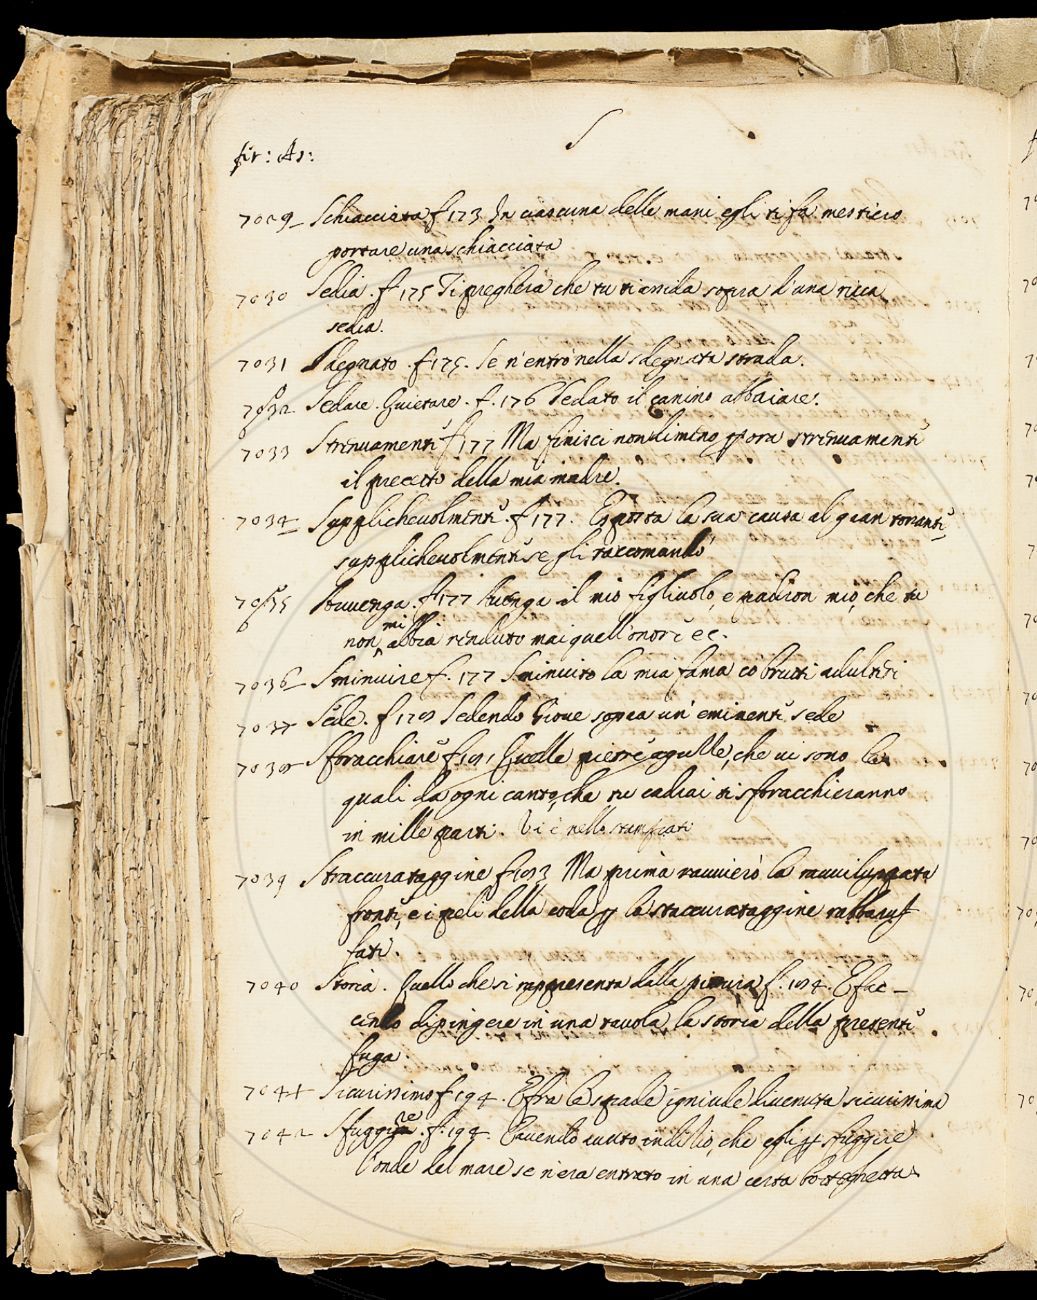 S
fir: As:
7029 Schiacciata f 173 In ciascuna delle mani egli ti fa mestiero
portare una schiacciata
7030 Sedia. f 175 Ti pregherà che tu ti assida sopra d'una ricca
sedia.
7031 Sdegnato. f 175. Se n'entrò nella sdegnata strada.
7032 Sedare. Quietare. f. 176 Sedato il canino abbaiare.
7033 Strenuamente f 177 Ma finisci nondimeno pora strenuamente
il precetto della mia madre.
7034 Supplichevolmente. f 177. Esposta la sua causa al gran tonante
supplichevolmente se gli raccomandò
7035 Souvenga. f 177 Avenga il mio figliuolo, e padron mio, che tu
non mi abbia renduto mai quell'onore ec.
7036 Sminuire f. 177 Sminuito la mia fama co brutti adulteri
7037 Sede. f 179 Sedendo Giove sopra un'eminente sede
7038 Sbracchiare f 181 Quelle pietre agulle, che vi sono le
quali da ogni canto, che tu cadrai ti sbracchieranno
in mille parti. Vi è nello stampati
7039 Straccurataggine f 183 Ma prima ravvierò la ravviluppata
fronte, e i peli della coda p la staccurataggine rabbaruf
fati.
7040 Storia. Quello che si rappresenta dalla pittura f. 194. E fac-
cendo dipingere in una tavola la storia della presente
fuga.
7041 Sicurissimo f 194. E fra le spade igniude divenuta sicurissima
7042 Sfuggire. f. 194. Cavendo avuto indizio, che egli p sfuggire
l'onde del mare se n'era entrato in una certa botteghetta